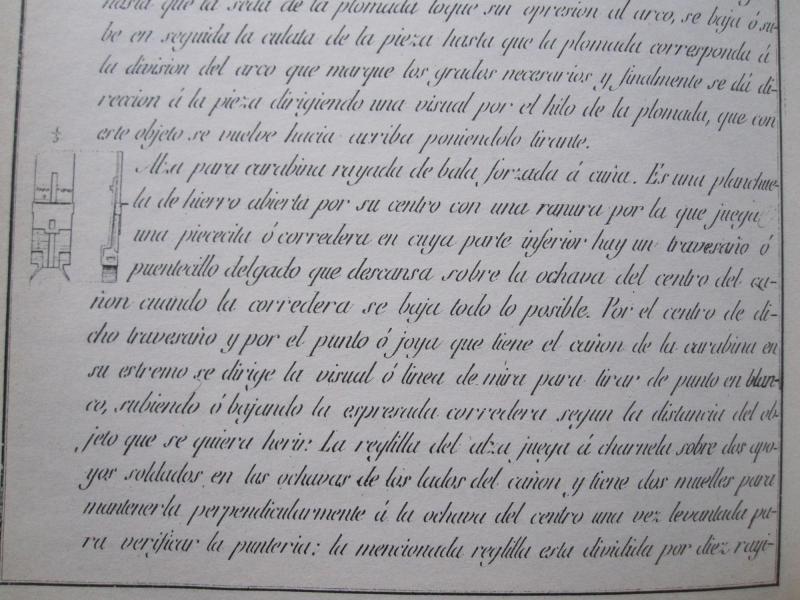 hasta que la seda de la plomada toque sin opresion al arco, se baja ó su-
be en seguida la culata de la pieza hasta que la plomada corresponda á
la division del arco que marque los grados necesarios y finalmente se dá di-
reccion á la pieza dirigiendo una visual por el hilo de la plomada, que con
este objeto se vuelve hacia arriba poniendolo tirante.
Alza para carabina rayada de bala forzada á cuña. Es una planchue-
la de hierro abierta por su centro con una ranura por la que juega
una piececita ó corredera en cuya parte inferior hay un travesaño ó
puentecillo delgado que descansa sobre la ochava del centro del ca-
ñon cuando la corredera se baja todo lo posible. Por el centro de di-
cho travesaño y por el punto ó joya que tiene el cañon de la carabina en
su estremo se dirige la visual ó linea de mira para tirar de punto en blan-
co, subiendo ó bajando la espresada corredera segun la distancia del ob-
jeto que se quiera herir: La reglilla del alza juega á charnela sobre dos apo-
yos soldados en las ochavas de los lados del cañon y tiene dos muelles para
mantenerla perpendicularmente á la ochava del centro una vez levantada pa-
ra verificar la punteria; la mencionada reglilla esta dividida por diez rayi-